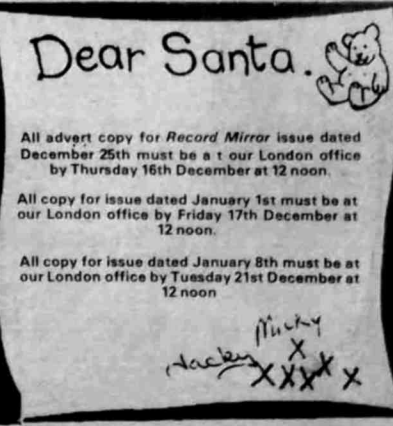 Dear Santa.
All advert copy for Record Mirror issue dated
December 25th must be a t our London office
by Thursday 16th December at 12 noon.
All copy for issue dated January 1st must be at
our London office by Friday 17th December at
12 noon.
All copy for issue dated January 8th must be at
our London office by Tuesday 21st December at
12 noon
Micky
X
Jacky
XXXX X